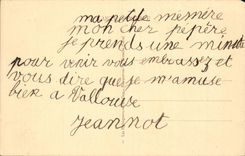 ma petite mémère
mon cher pépère
je prends une minute
pour venir vous embrassez et
vous dire que je m'amuse
bien a Vallouise
Jeannot